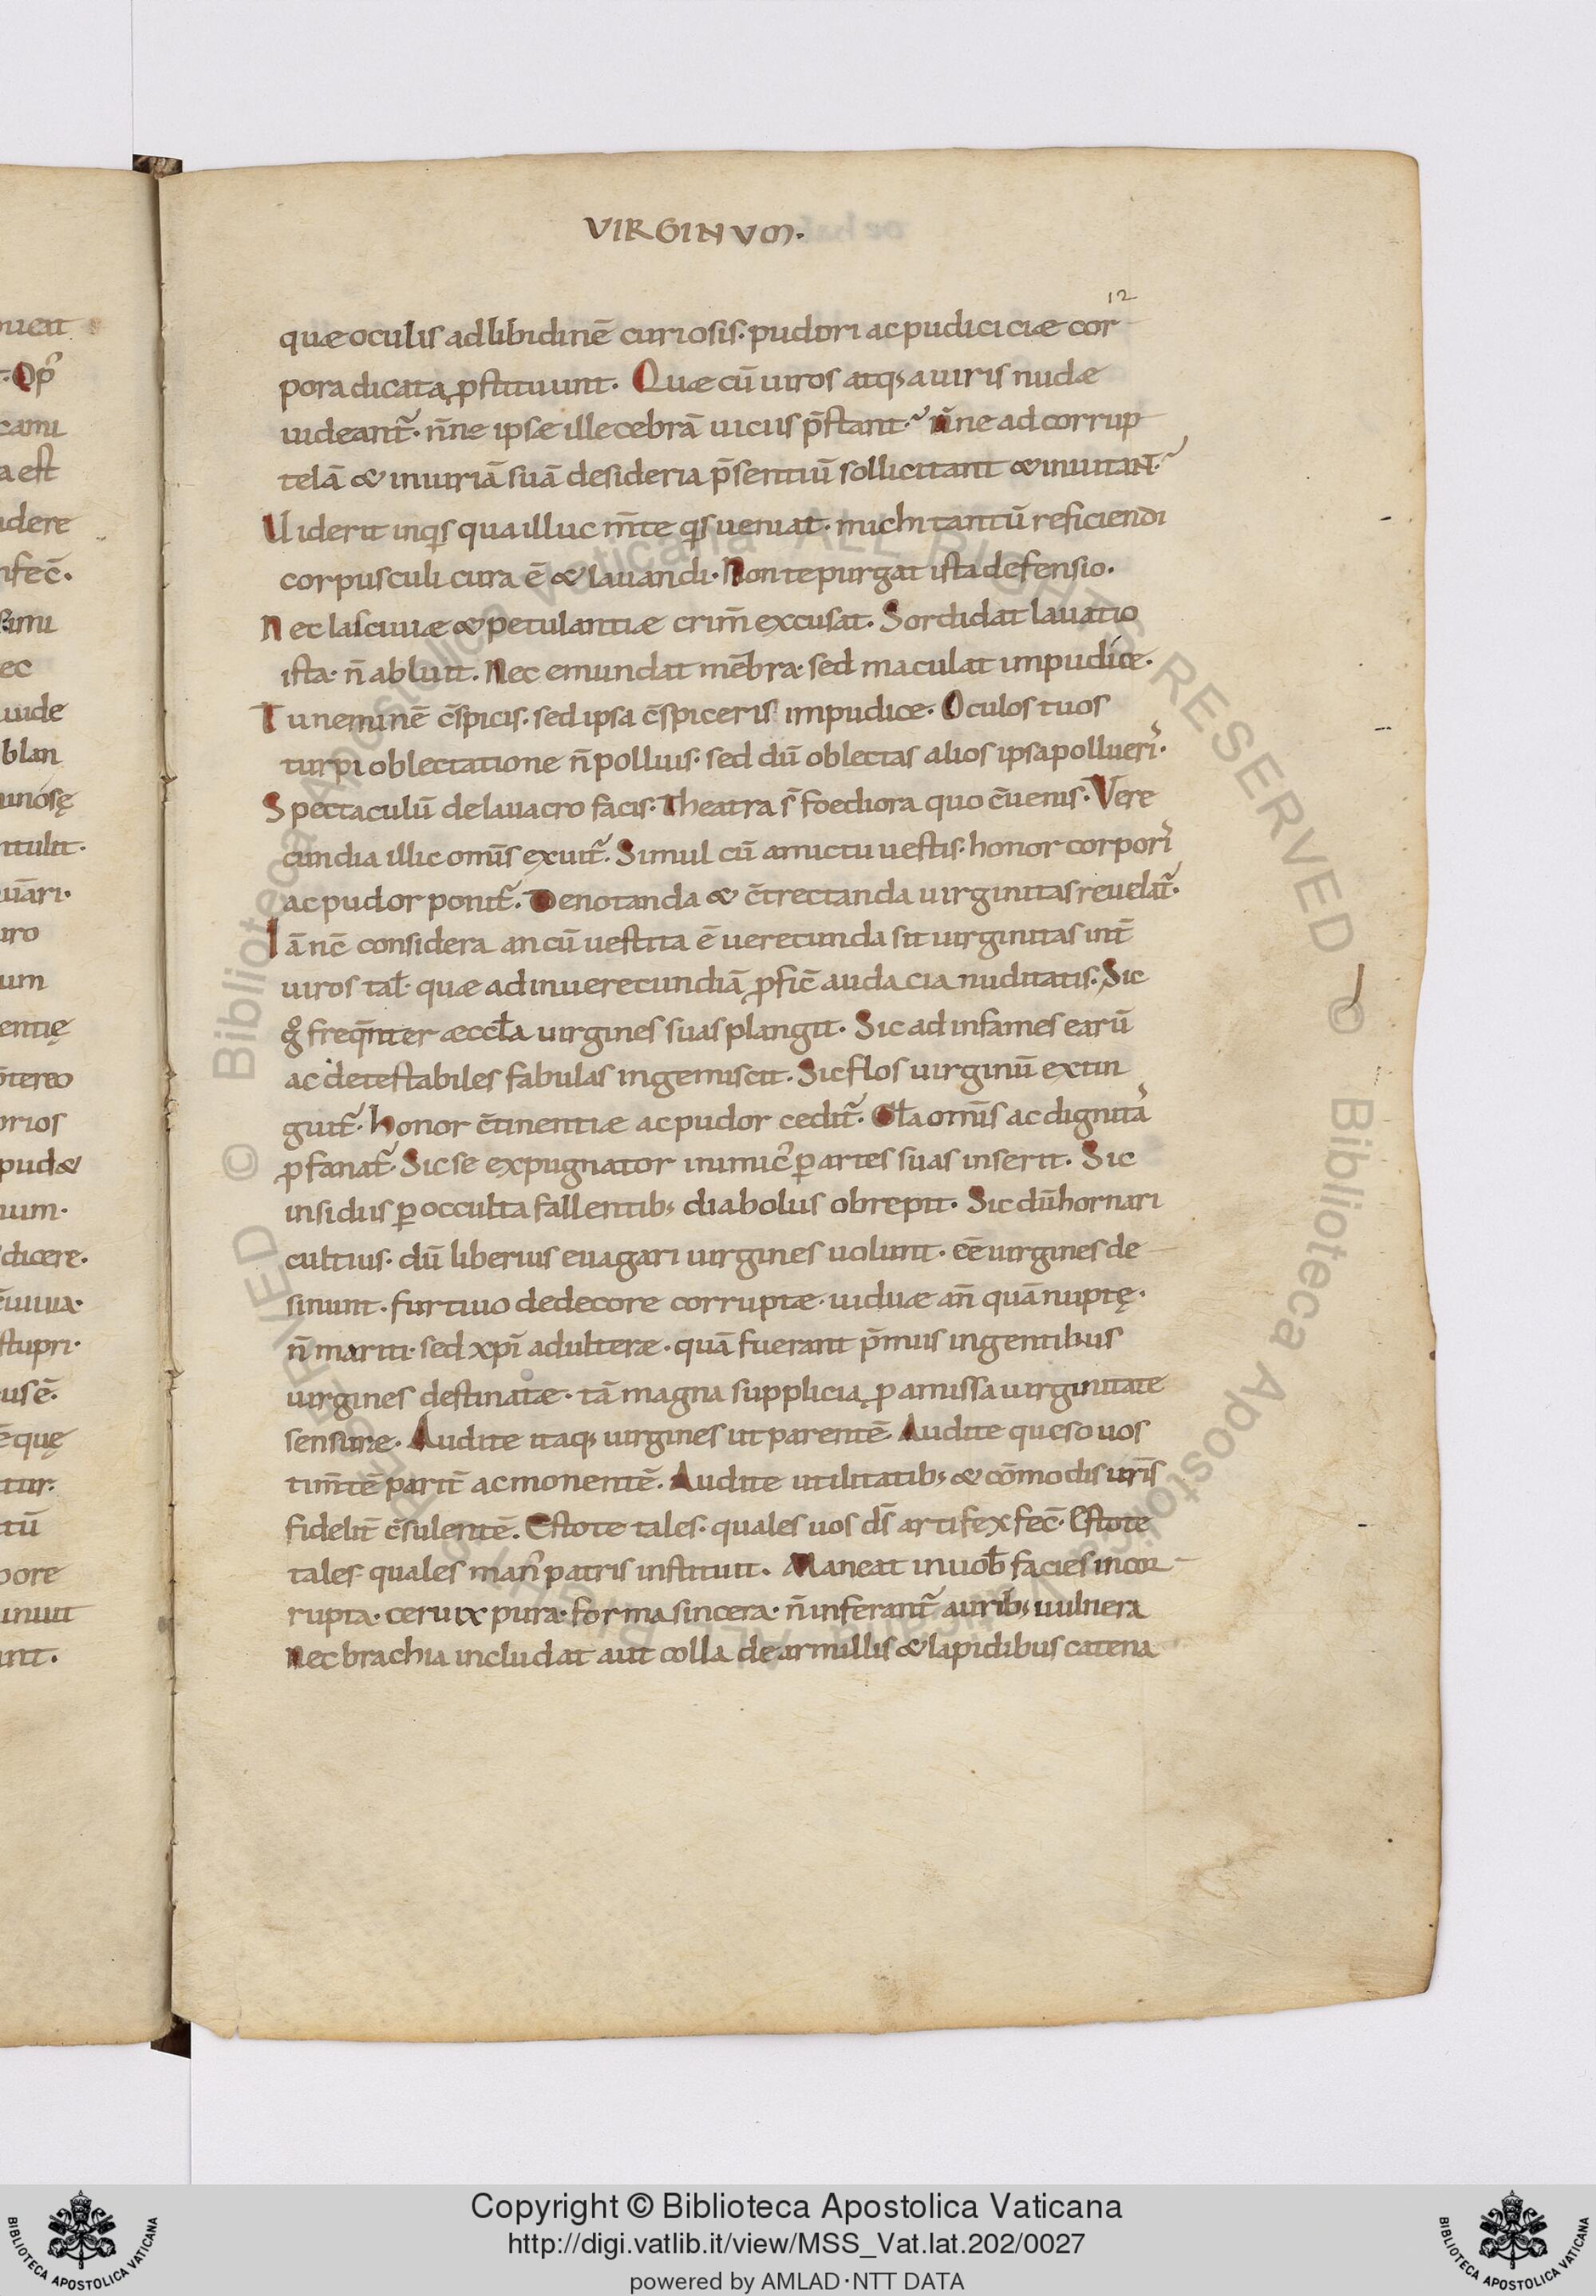 VIRGINVM.
12
quæ oculis ad libidinē curiosis· pudori ac pudiciciæ cor
pora dicata ꝓstituunt. Quæ cū uiros atq; a uiris nudæ
uideant̃· n̄ne ipsæ illecebrā uiciis p̄stant? n̄ne ad corrup
telā & iniuriā suā desideria p̄sentiū sollicitant & inuitant?
Uiderit inq̇s qua illuc m̄te q̇s ueniat· michi tantū reficiendi
corpusculi cura ē & lauandi· Non te purgat ista defensio.
Nec lasciuiæ & petulantiæ crim̄ excusat. Sordidat lauatio
ista· n̄ abluit. Nec emundat mēbra· sed maculat impudicæ.
Tu neminē c̄spicis· sed ipsa c̄spiceris impudice. Oculos tuos
turpi oblectatione n̄ polluis· sed dū oblectas alios ipsa pollueri᾽.
Spectaculū de lauacro facis. Theatra s̄ foediora quo c̄uenis. Vere
cundia illic omīs exuit̃. Simul cū amictu uestis· honor corpori᾽
ac pudor ponit̃. Denotanda & c̄trectanda uirginitas reuelat̃.
Iā nc̄ considera an cū uestita ē uerecunda sit uirginitas int̄
uiros tal̄· quæ ad inuerecundiā ꝓfic̄ audacia nuditatis. Sic
gͦ freq̄nter æccl̄a uirgines suas plangit. Sic ad infames earū
ac detestabiles fabulas ingemiscit. Sic flos uirginū extin
guit̃. honor c̄tinentiæ ac pudor cedit̃. Gl̄a omīs ac dignita᾽
ꝓfanat̃. Sic se expugnator inimic᾽ ꝑ artes suas inserit. Sic
insidiis ꝑ occulta fallentib; diabolus obrepit. Sic dū hornari
cultius· dū liberius euagari uirgines uolunt· ēe uirgines de
sinunt· furtiuo dedecore corruptæ· uiduæ an̄ quā nuptę·
n̄ mariti· sed xp̄i adulteræ· quā fuerant p̄miis ingentibus
uirgines destinatæ· tā magna supplicia ꝓ amissa uirginitate
sensuræ. Audite itaq; uirgines ut parentē. Audite queso uos
tim̄tē parit̄ ac monentē. Audite utilitatib; & cōmodis ur̄is
fidelit̄ c̄sulentē. Estote tales· quales uos ds̄ artifex fec̄. Estote
tales quales man᾽ patris instituit. Maneat in uob̄ facies incor
rupta· ceruix pura· forma sincera· n̄ inferant̃ aurib; uulnera
nec brachia includat aut colla de armillis & lapidibus catena
Copyright © Biblioteca Apostolica Vaticana
http://digi.vatlib.it/view/MSS_Vat.lat.202/0027
powered by AMLAD·NTT DATA